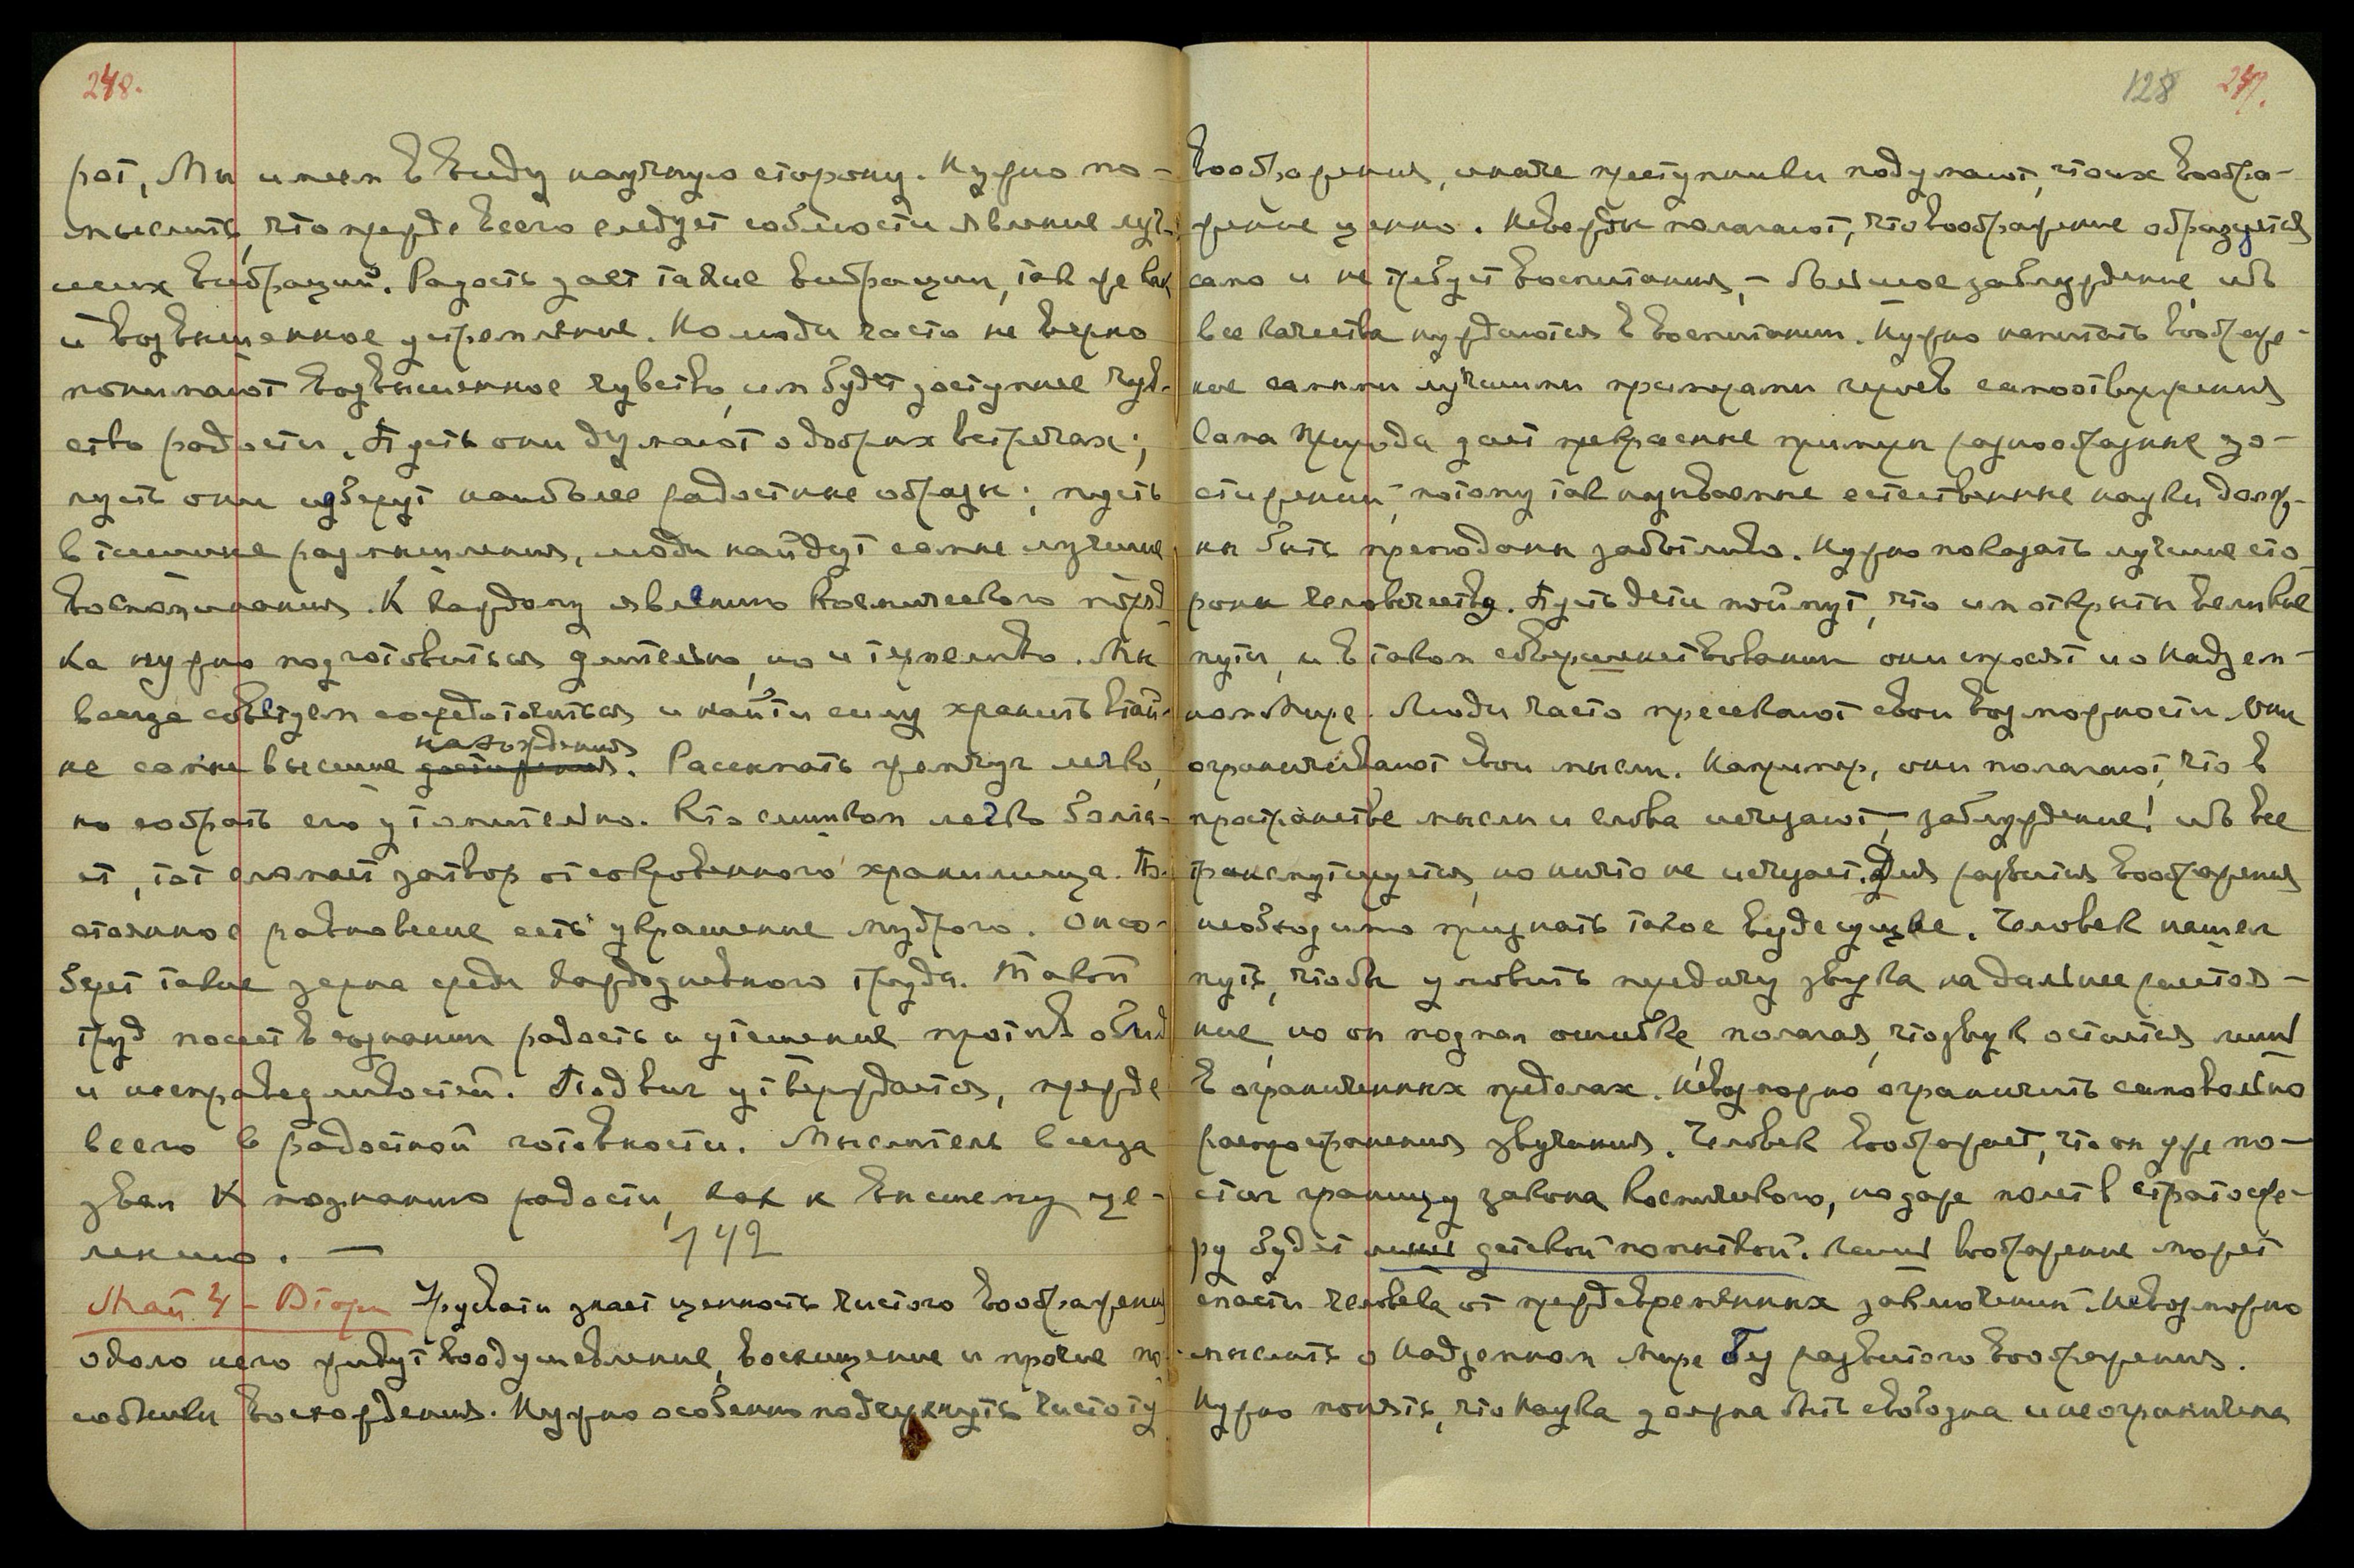 248.
рот, Мы имеем в виду научную сторону. Нужно по-
мыслить, что прежде всего следует соблюсти явление луч-
ших вибраций. Радость дает такие вибрации, так же как
и возвышенное устремление. Но люди часто не верно
понимают возвышенное чувство, им будет доступнее чув-
ство радости. Пусть они думают о добрых встречах;
пусть они изберут наиболее радостные образы; пусть
в тишине размышления, люди найдут самые лучшие
воспоминания. К каждому явлению Космического поряд
ка нужно подготовиться длительно, но и терпеливо. Мы
всегда советуем сосредоточиться и найти силу хранить втай-
нахождения
не самые высшие достижения. Рассыпать жемчуг легко,
но собрать его утомительно. Кто слишком легко болта-
ет, тот сломает затвор от сокровенного хранилища. По-
стоянное равновесие есть украшение мудрого. Он со-
берет такие зерна среди каждодневного труда. Такой
труд несет в сознании радость и утешение против обид
и несправедливостей. Подвиг утверждается, прежде
всего в радостной готовности. Мыслитель всегда
звал к познанию радости, как к высшему це-
лению. —
742
Май 4 - Вторн Урусвати знает ценность чистого воображения
около него живут воодушевление, восхищение и прочие по-
собники восхождения. Нужно особенно подчеркнуть чистоту
128 249.
воображения, иначе преступники подумают, что их вообра-
жение ценно. Невежды полагают, что воображение образуется
само и не требует воспитания, - большое заблуждение, ибо
все качества нуждаются в воспитании. Нужно напитать воображе-
ние самыми лучшими примерами героев самоотвержения
Сама Природа дает прекрасные примеры разнообразные до-
стижений, потому так называемые естественные науки долж-
ны быть преподаны заботливо. Нужно показать лучшие сто
роны человечества. Пусть дети поймут, что им открыты великие
пути, и в таком совершенствовании они спросят и о Надзем-
ном Мире. Люди часто пресекают свои возможности. Они
ограничивают свои мысли. Например, они полагают, что в
пространстве мысли и слова исчезают, - заблуждение! ибо все
трансмутируется, но ничто не исчезает. Для развития воображения
необходимо признать такое вездесущие. Человек нашел
путь, чтобы уловить передачу звука на дальнее расстоя-
ние, но он подпал ошибке, полагая, что звук остается лишь
в ограниченных пределах. Невозможно ограничить самовольно
распространения звучания. Человек воображает, что он уже по-
стиг границу закона космического, но даже полет в стратосфе-
ру будет лишь детской попыткой. Лишь воображение может
спасти человека от преждевременных заключений. Невозможно
мыслить о Надземном Мире без развитого воображения.
Нужно понять, что Наука должна быть свободна и неограничена